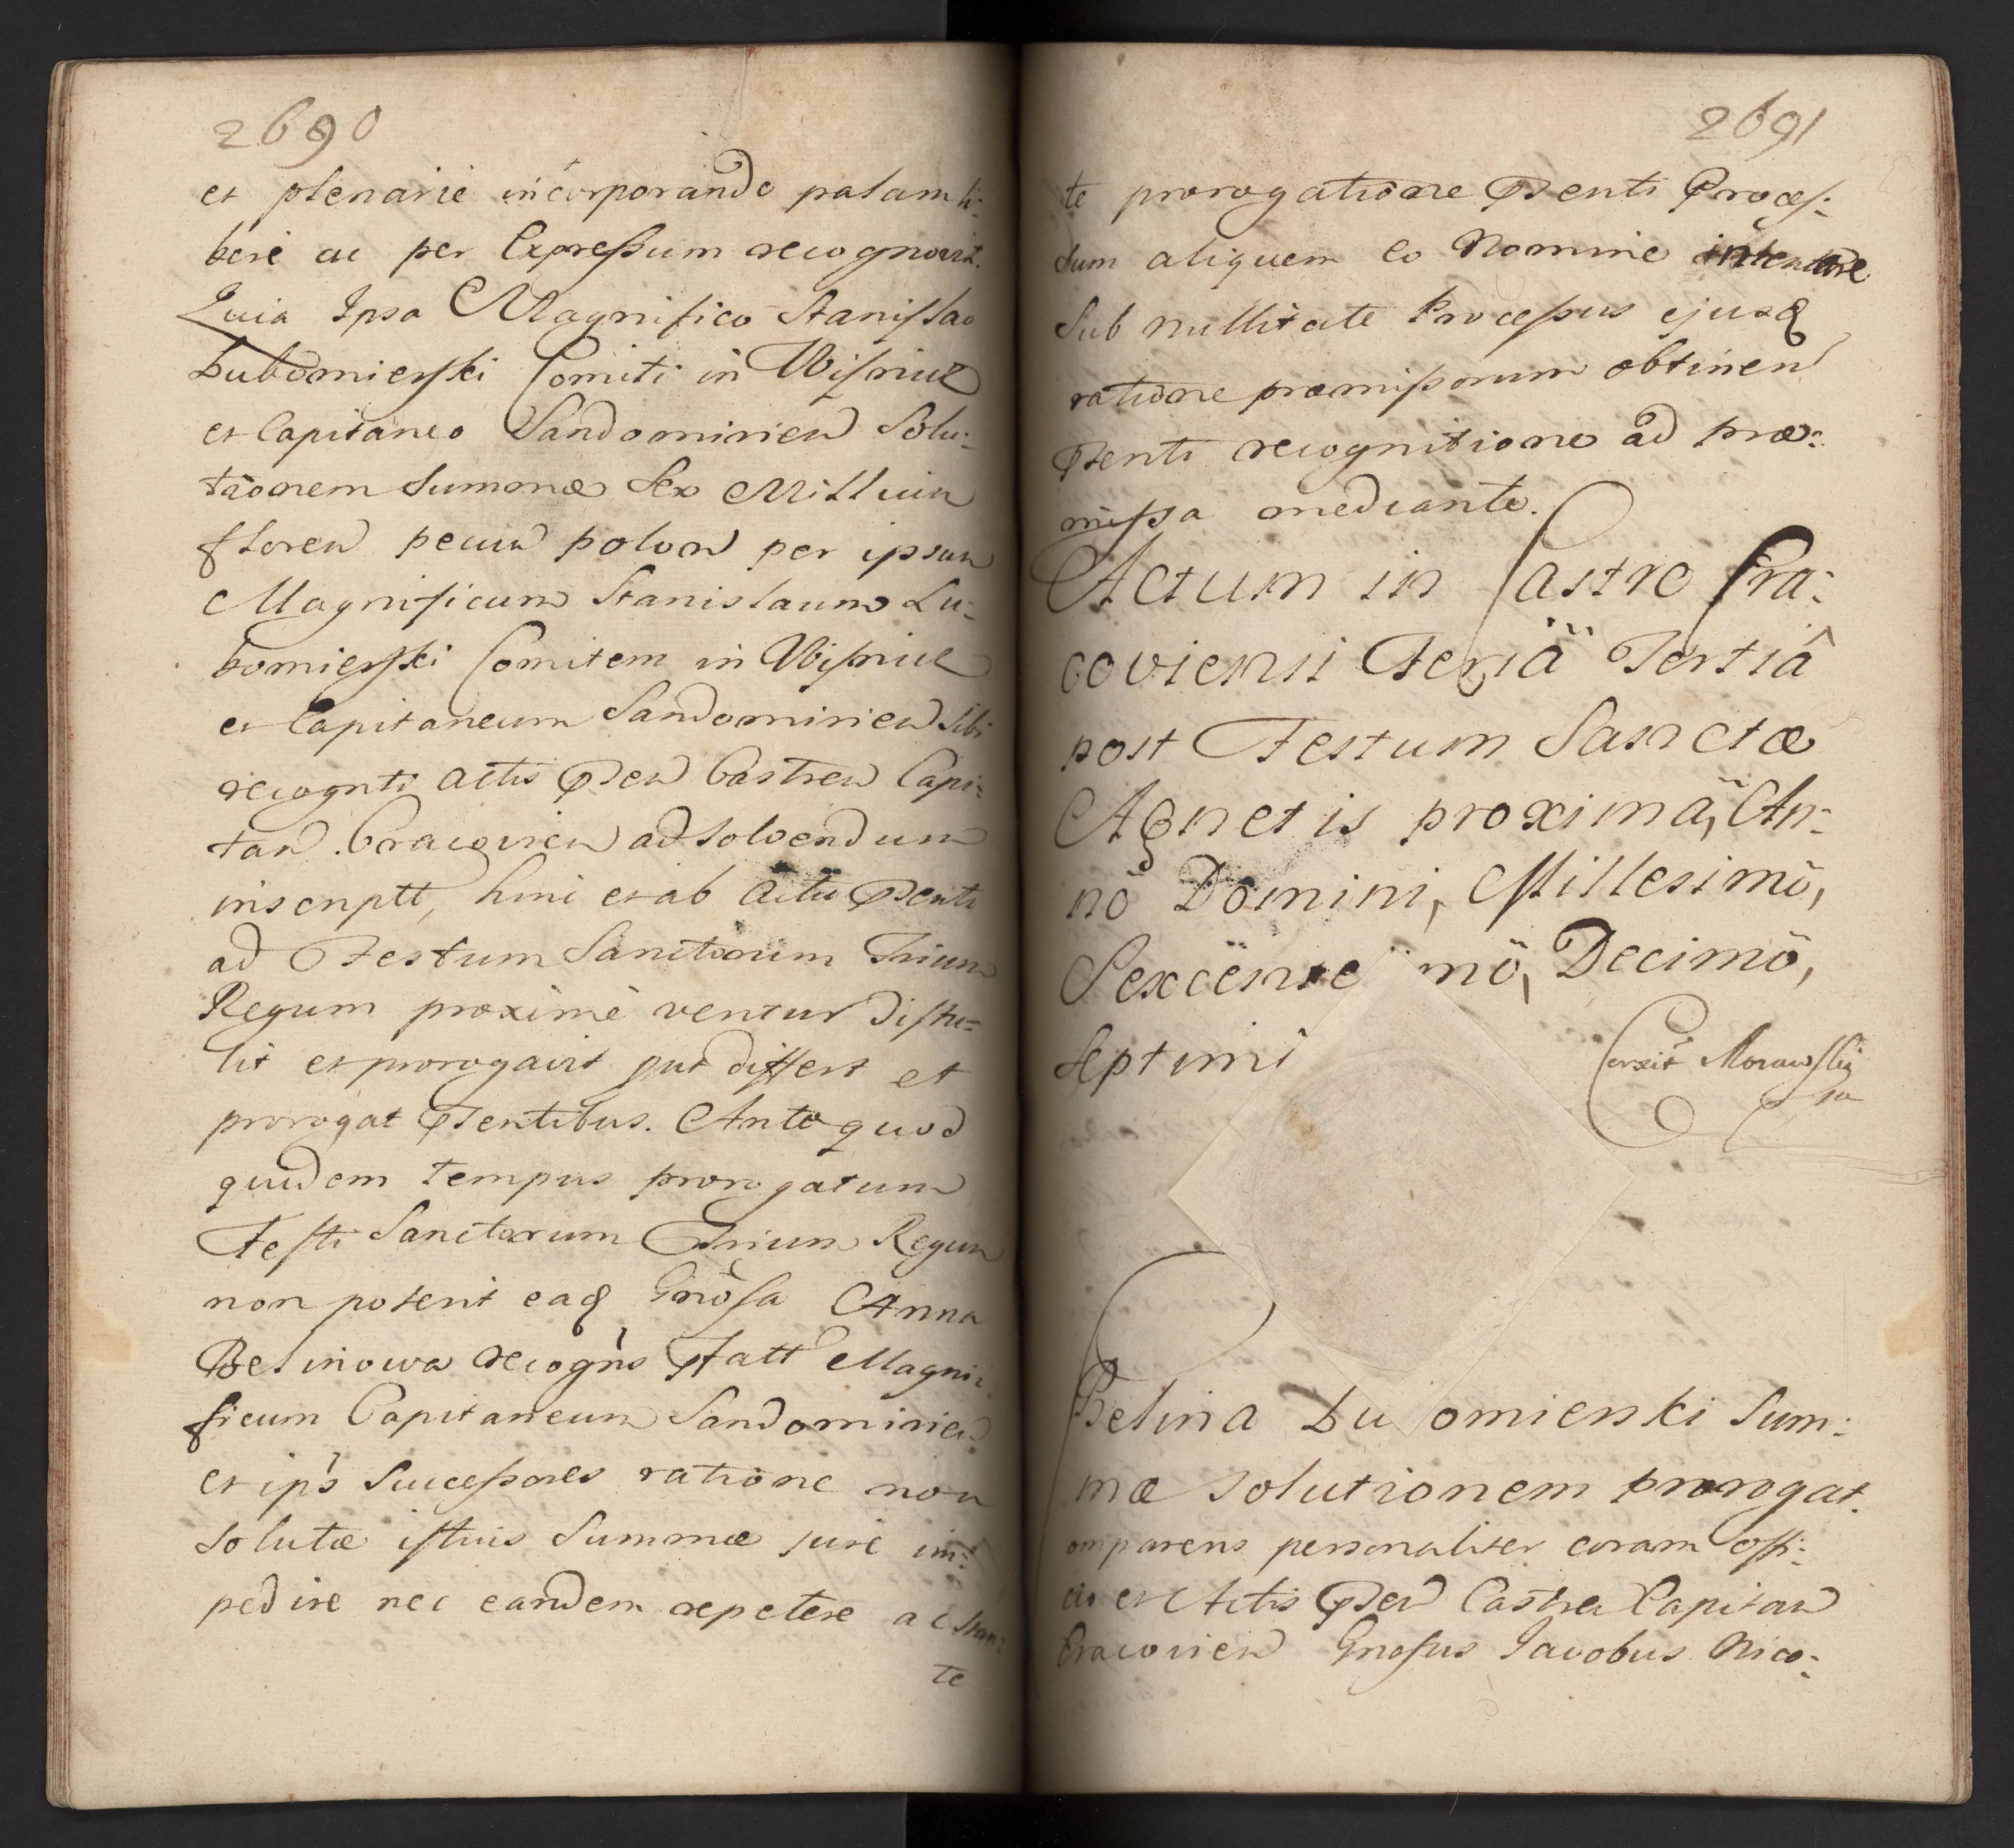 2690
et plenarie incorporando palam li:
bere ac per Expressum recognovit.
Quia Ipsa Magnifico Stanislao
Lubomierski Comiti in Wisnicz
et Capitaneo Sandomirien Solu:
tionem Summæ Sex Millium
floren pecun polon per ipsum
Magnificum Stanislaum Lu:
bomierski Comitem in Wisnicz
et Capitaneum Sandomirien sibi
recognti Actis pnsen Castren Capi:
tan. Cracovien ad solvendum
inscriptt, hinc et ab Actu pnsenti
ad Festum Sanctorum Trium
Regum proximè ventur distu:
lit et prorogavit put differt et
prorogat pnsentibus. Ante quod
quidem tempus prorogatum
Festi Sanctorum Trium Regum
non poterit eadq Gnosa Anna
Belinowa recogns pfatt Magni:
ficum Capitaneum Sandomirien
et ips Successores ratione non
solutæ istius Summæ jure im:
pedire nec eandem repetere ac stan:
te
2691
te prorogatione pnsenti Proces:
sum aliquem eo Nomine intentare
Sub nullitate Processus ejusdq
ratione præmissorum obtinen
pnsenti recognitione ad præ:
missa mediante.
Actum in Castro Cra:
coviensi Feriâ Tertiâ
post Festum Sanctæ
Agnetis proximâ, An:
nô Domini, Millesimô,
Sexcente mô, Decimô,
Septimi
Corexit Morawski
Belina Lu omierski Sum:
mæ solutionem prorogat.
omparens personaliter coram offi:
cio et Actis pnsen Castren Capitan
Cracovien Gnosus Jacobus Nico: